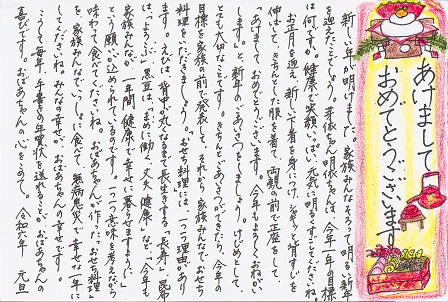 あけまして
おめでとうございます
新しい年が明けました。家族みんなそろって明るい新年
を迎えたことでしょう。 明依ちゃんは、今年一年の目標
は何ですか。健康で笑顔いっぱい元気に明るくすごしてくださいね。
お正月を迎え新しい下着を身につけ、せすじを
伸ばして、きちんとした服を着て、両親の前で正座をして
「あけましておめでとうございます。今年もよろしくおねがいし
ます」と、新年のごあいさつをしましょう。けじめとして、
とても大切なことです。きちんとごあいさつできたら、今年の
目標を家族の前で発表して、それから家族みんなでおせち
料理をいただきましょう。おせち料理には一つ一つ理由があり
ます。えびは背中が丸くなるまで長生きする「長寿」昆布
は「よろこぶ」黒豆は、まめに働く、丈夫、健康 など、「今年も
家族みんなが一年間健康で幸せに暮らせますように」
という願いが込められているのです。一つ一つ意味を考えながら
味わって食べてくださいね。おばあちゃんの作った"おせち料理"
を家族みんなでいっしょに食べて、無病息災で幸せな一年に
してくださいね。みんなの幸せが、おばあちゃんの幸せです。
こうして毎年、手書きの年賀状を送れることが、おばあちゃんの
喜びです。おばあちゃんの心をこめて。 令和六年 元旦